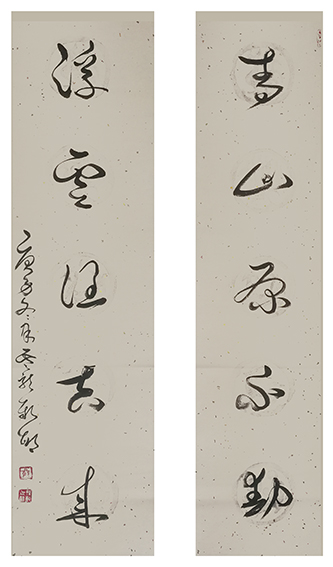 青山原不動
浮雲任去來
庚子冬月